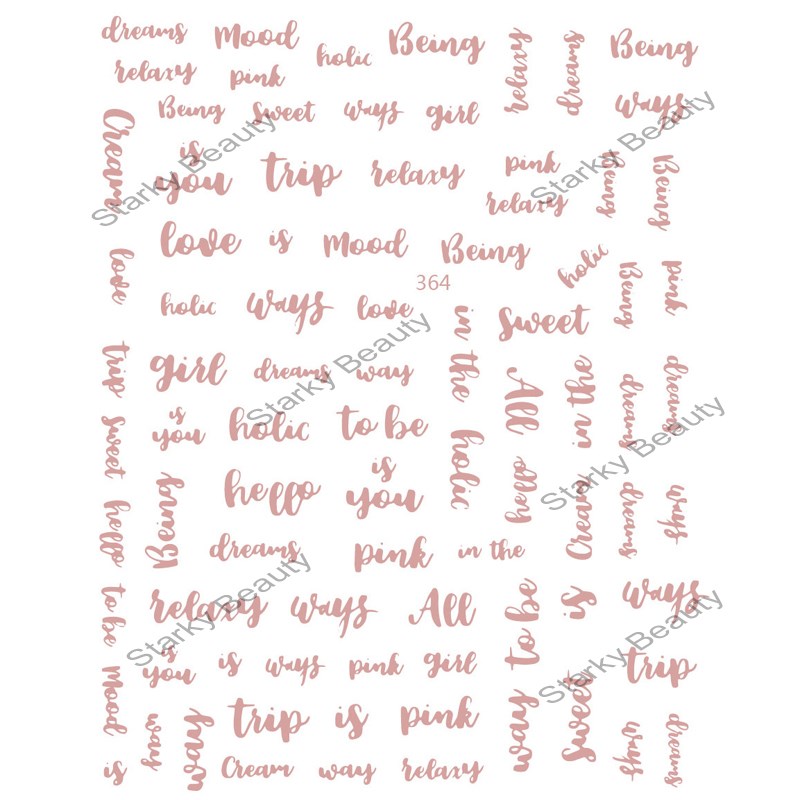 dreams Mood holic Being relaxy dreams Being
relaxy pink
Being sweet ways girl ways
Cream is
you trip relaxy pink Being Being
relaxy
Starky Beauty
Starky Beauty
love love is Mood Being holic Being pink
364
holic ways love in the sweet
Starky Beauty
trip girl dreams way All in the dreams dreams
sweet is
you holic to be holic
Starky Beauty
hello Being hello is
you hello Cream dreams ways
dreams pink in the
Starky Beauty
to be relaxy ways All to be is ways
Starky Beauty
Mood is
you is ways pink girl way sweet trip
way way trip is pink ways dreams
is Cream way relaxy